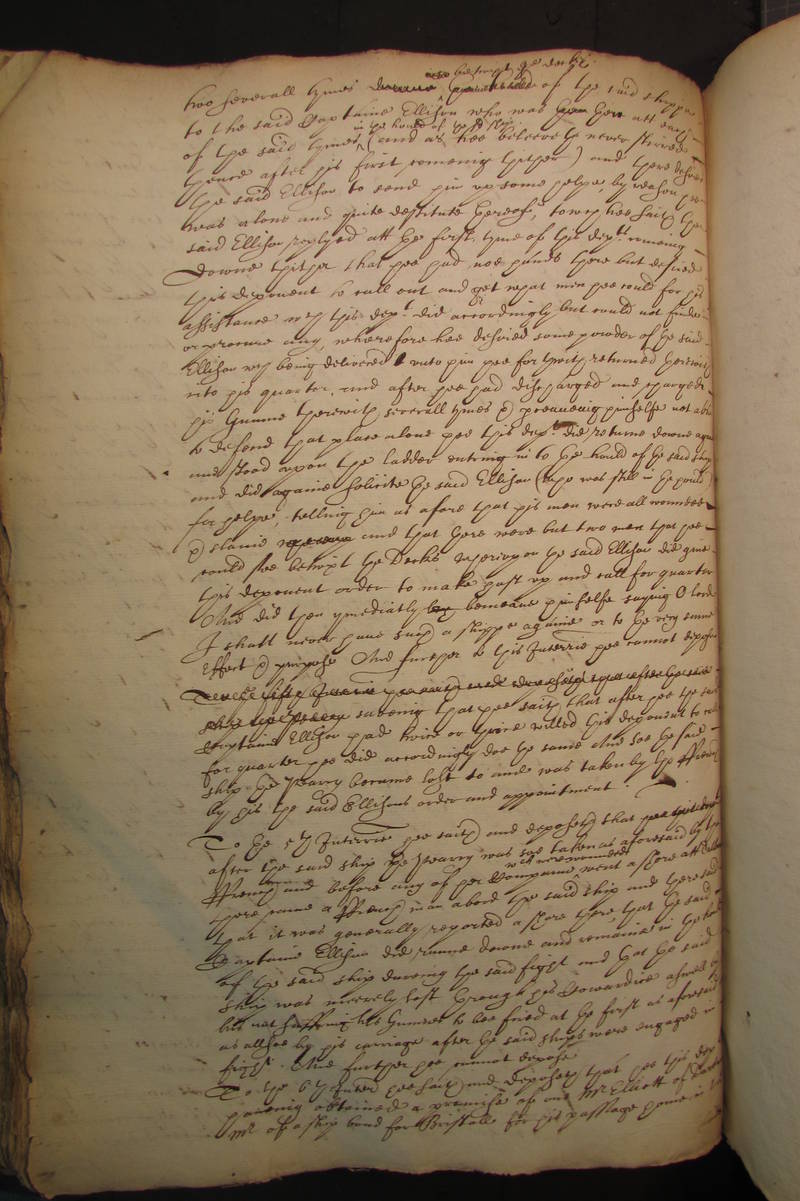 two severall tymes betwixt ye decks of the said shippe
to the said Captaine Ellison who was then att each
of the said tymes in the hould of the sd shipp (and as hee beleeveth never stirred
thence after his first comeing thither) and there desired
the said Ellison to send him up some helpe by reason hee
was alone and quite destitute thereof, to wch hee saith the
said Ellison replyed att the first tyme of this dept. comeing
downe thither that hee had noe hands there but desired
this deponent to call out and get what men hee could for his
assistance wch this dept. did accordingly but could not finde
or procure any, wherefore hee desired some powder of the said
Ellison wch being delivered unto him hee forthwith returned therewith
into his quarter, and after hee had discharged and charged
his Gunne therewith severall tymes & perceiveing himselfe not able
to defend that place alone hee this dept. did returne downe againe
and stood upon the ladder entring in to the hould of the said shipp
and did againe solicite the said Ellison (who was still in the hould)
for helpe, telling him as afore that his men were all wounded
& slaine and that there were but two men that hee
could see betwixt the Decks whereupon the said Ellison did give
this deponent order to make hast up and call for quarter
And did then ymediatly bemoane himselfe saying O lord
I shall never have such a shippe againe or to the very same
effect & purpose And further to this Interrie hee cannot depose
saveing that hee saith that after hee the said
Captaine Ellison had twice or thrice willed this deponent to call
for quarter hee did accordingly doe the same And soe the said
ship the Pearry became lost to and was taken by the ffrench
by his the said Ellisons order and appointment.
To the 5th Interrie hee saith and deposeth that
after the said ship the Pearry was soe taken as aforesaid by the
ffrench and before any of her Company wch were wounded went a shore att
there came a ffrench man abord the said ship and there said
that it was generally reported a shore there that the said
Captaine Ellison did runne downe and remaine in the hould
of the said ship dureing the said fight and that the said
ship was meerely lost through his Cowardice aswell by
his not suffering his Gunnes to bee fired at the first as aforesaid
as allsoe by his carriage after the said ships were engaged in
fight. And further hee cannot depose
To the 6th Interr hee saith and deposeth that hee this dept
haveing obtained a promise of one Mr Elliott of
Mr of a ship bound for Bristoll for his passage home in